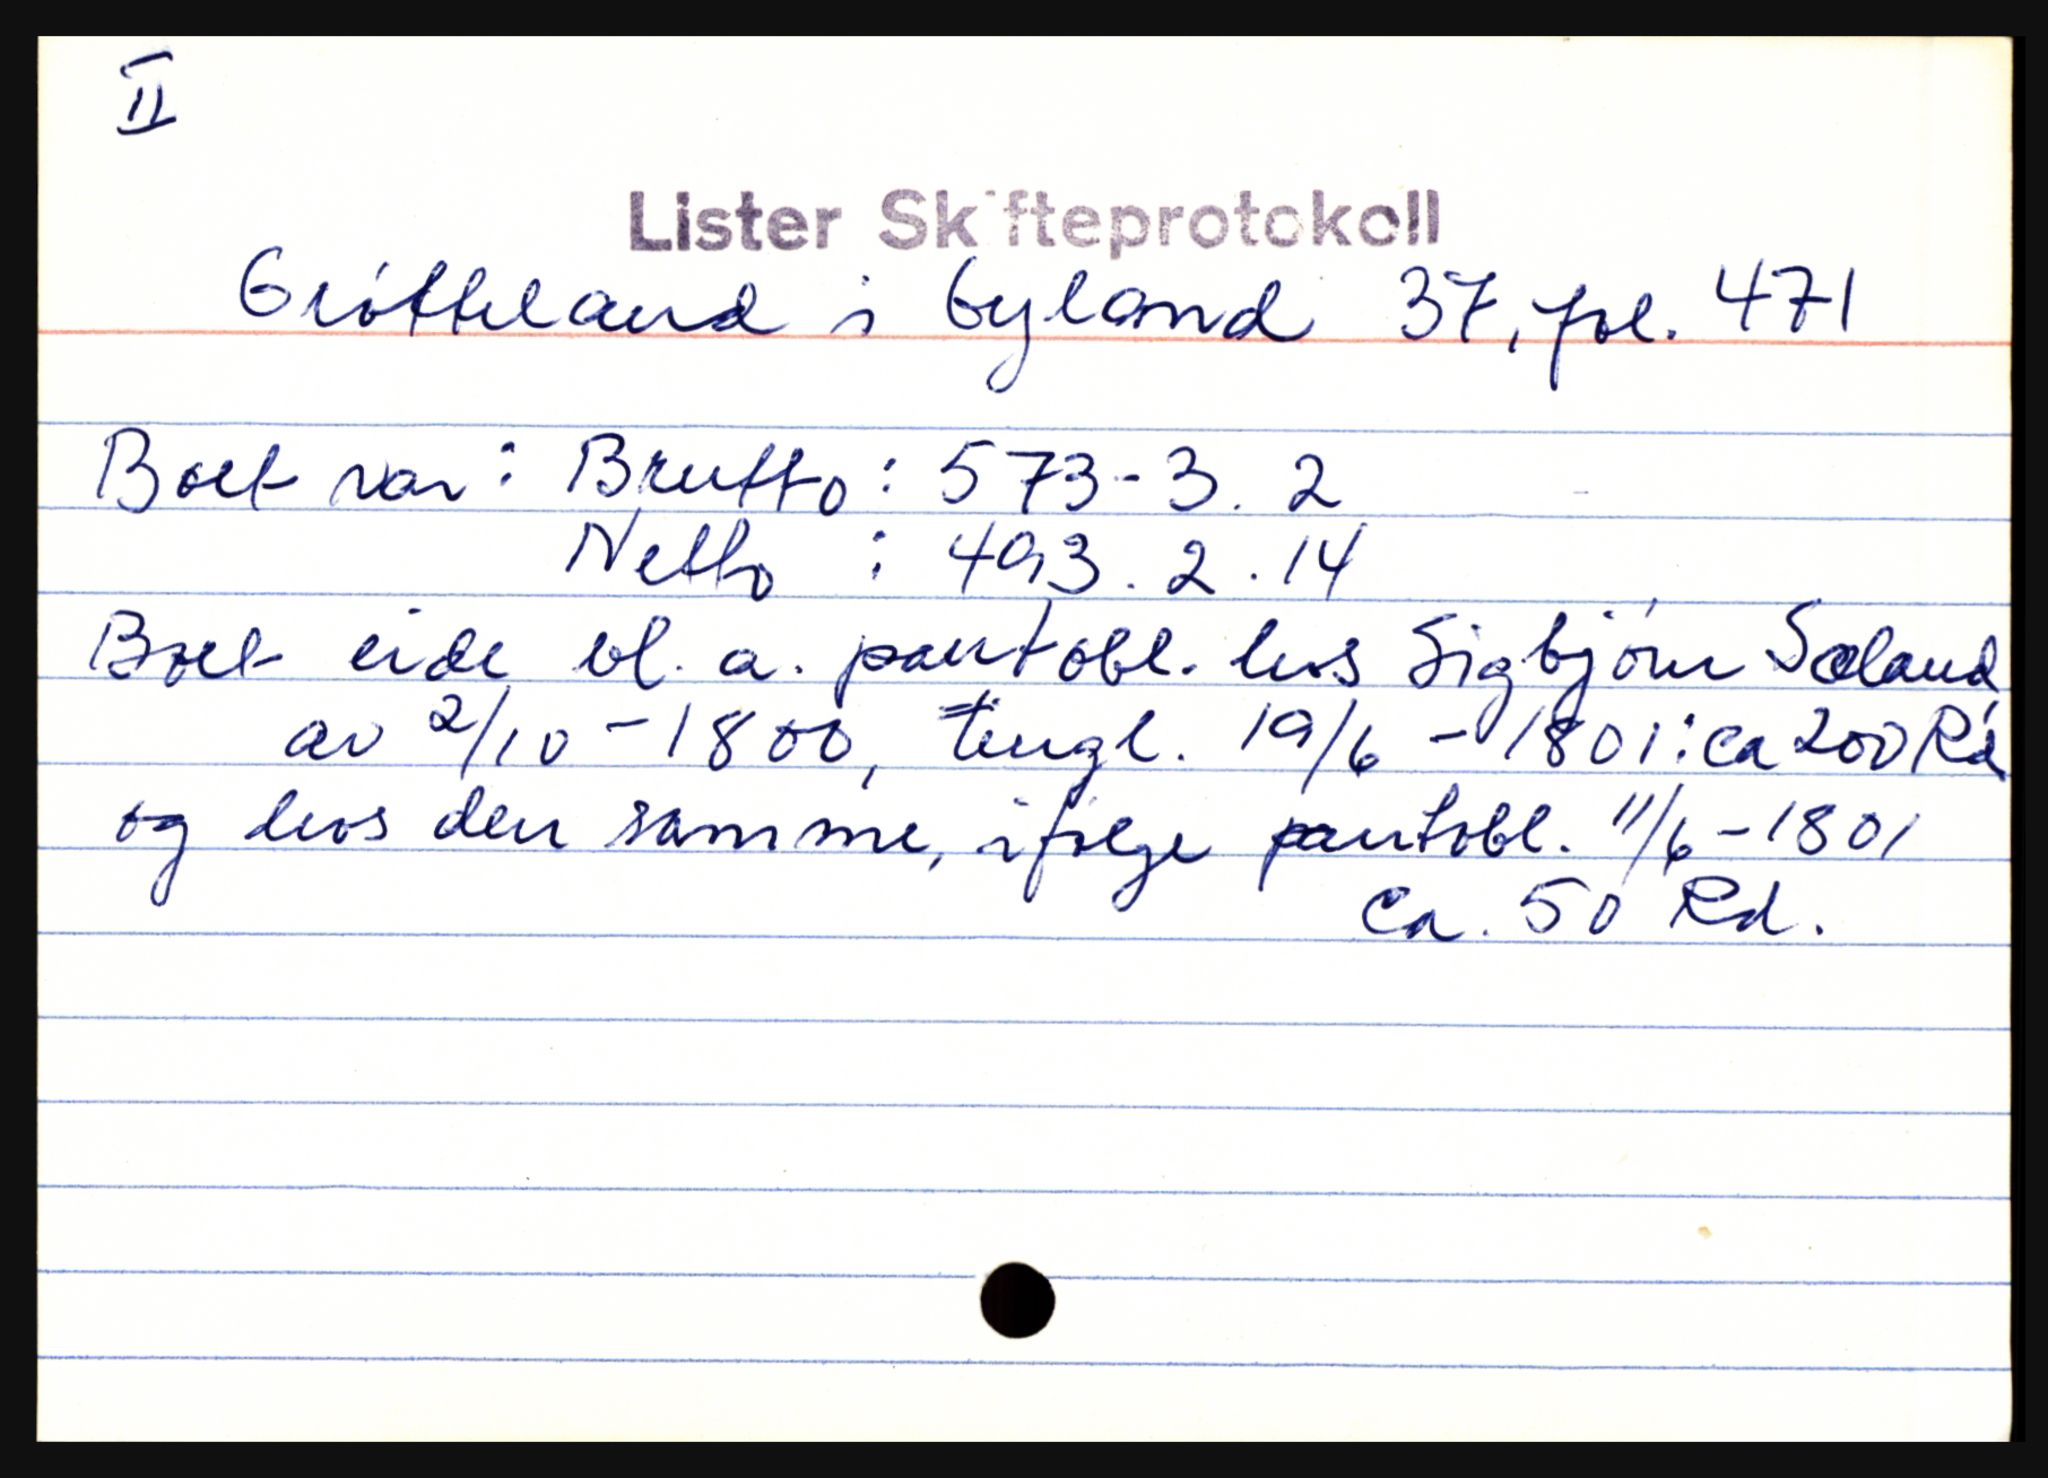 II
Lister Skifteprotokoll
Grötteland i Gyland 37, fol. 471
Boet var: Brutto: 573-3. 2
Netto : 493. 2. 14
Boet eide bl. a. pantobl. hos Sigbjörn Sæland
av 2/10 - 1800, tingl. 19/6 - 1801: ca 200 Rd
og hos den samme, ifölge pantobl. 11/6 - 1801
ca. 50 Rd.